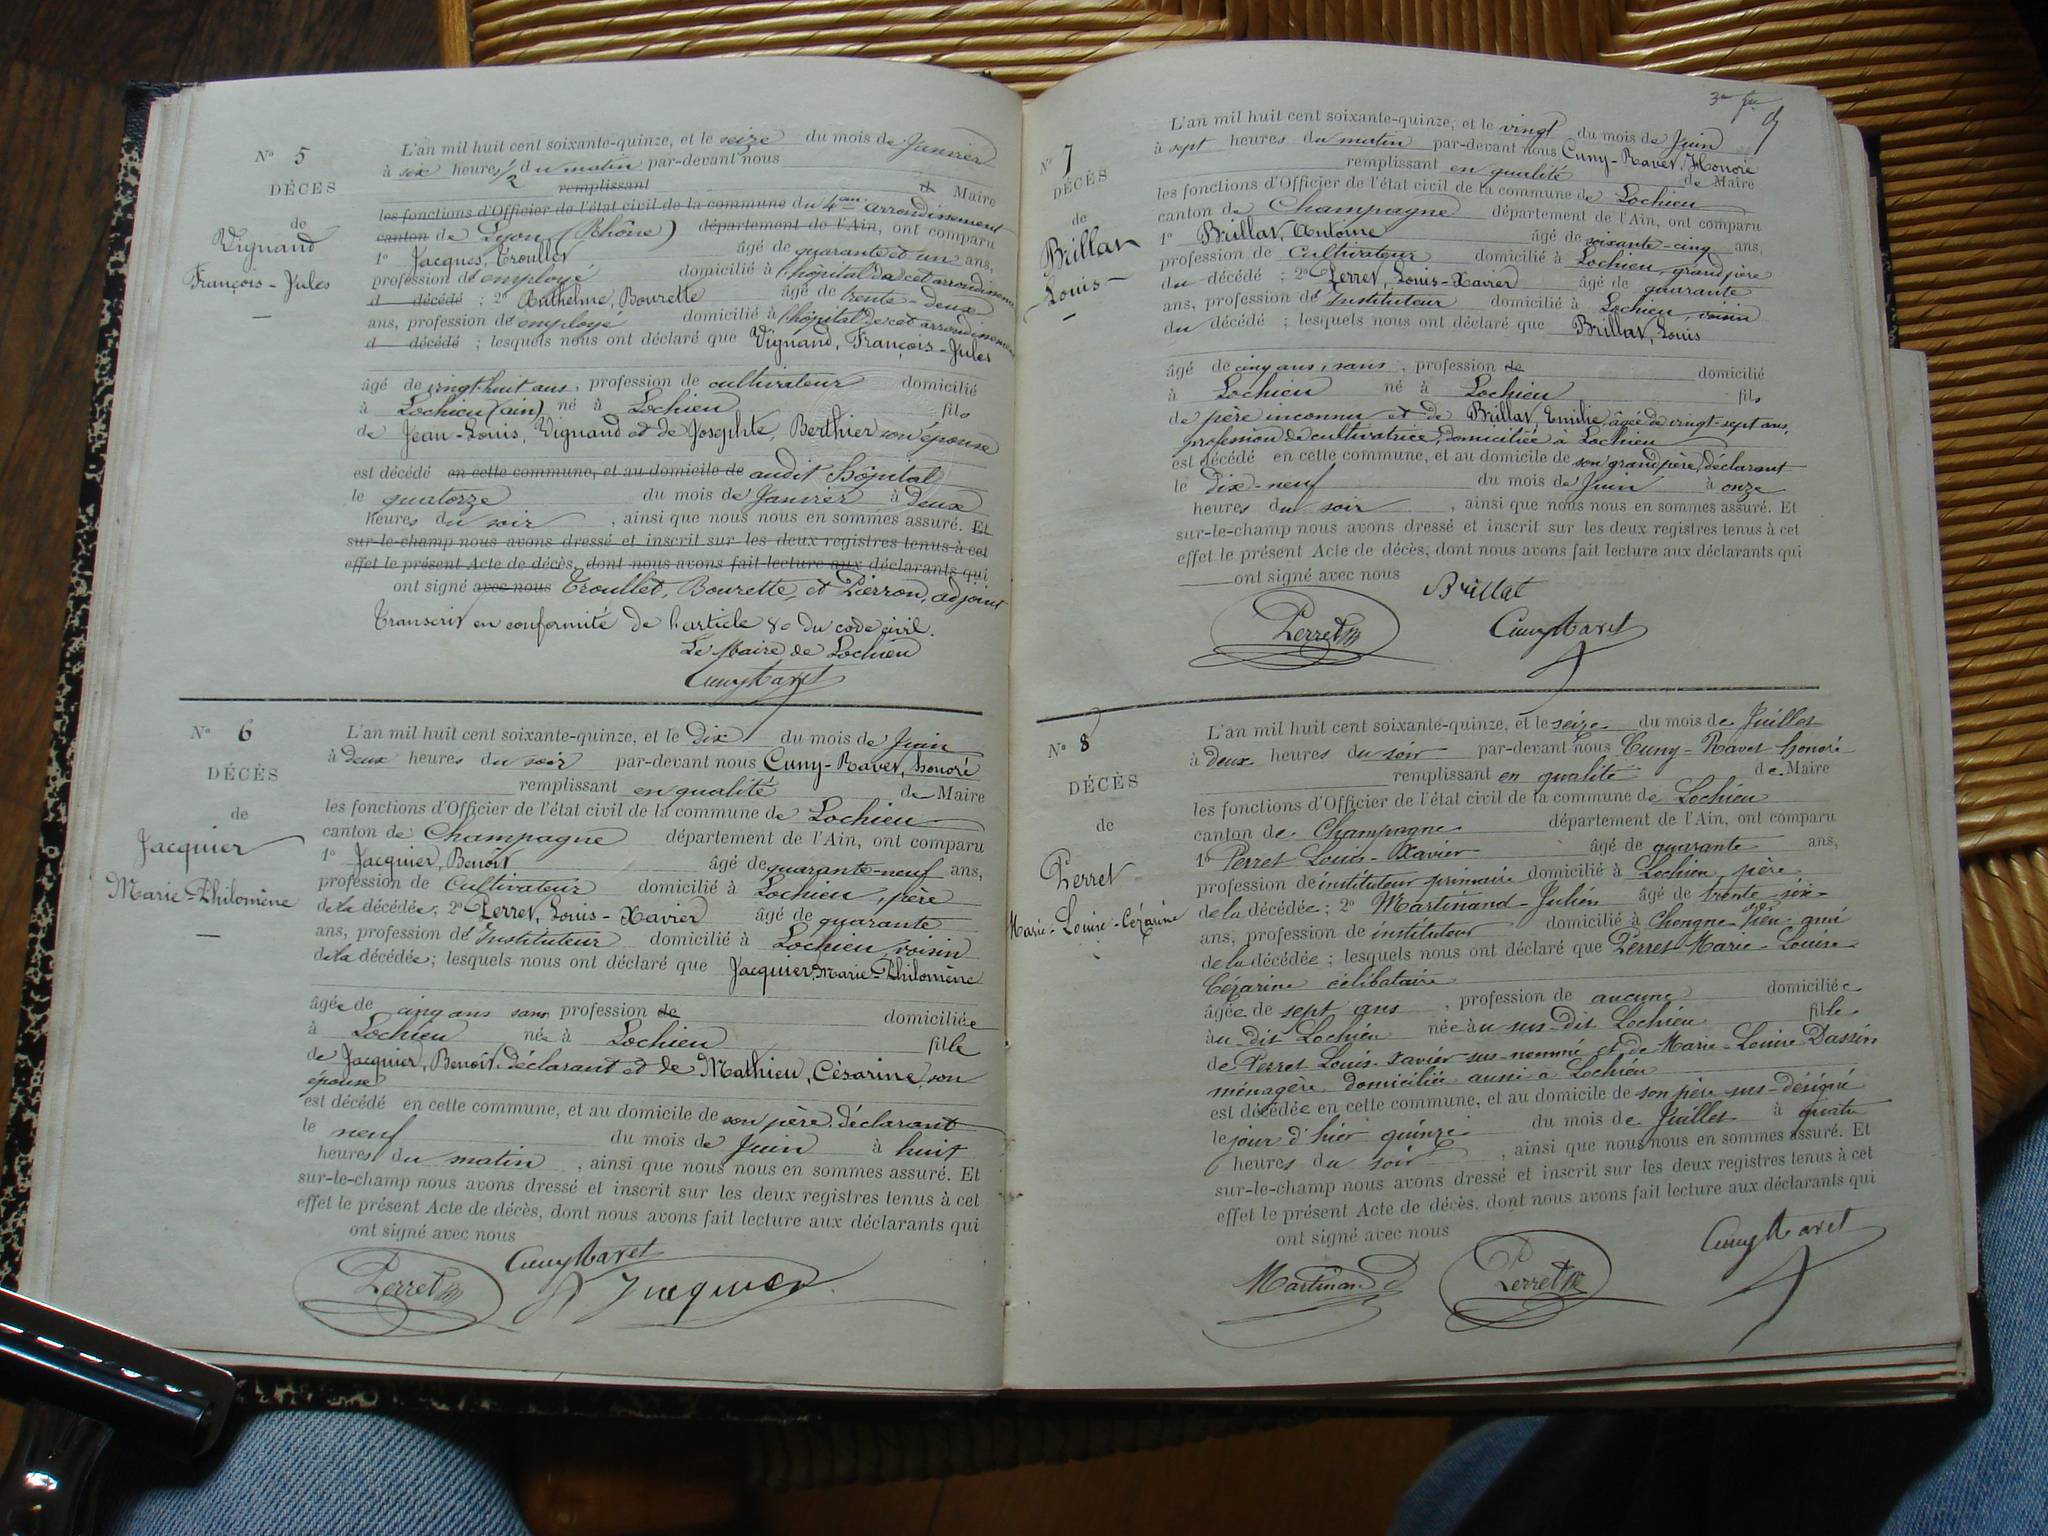 N° 5
DÉCÈS
de
Vignand
François-Jules
L'an mil huit cent soixante-quinze, et le seize du mois de Janvier
à six heures 1/2 du matin par-devant nous
remplissant d Maire
les fonctions d'Officier de l'état civil de la commune du 4eme arrondissement
canton de Lyon (Rhône) département de l'Ain, ont comparu
1° Jacques, Troullet âgé de quarante et un ans,
profession de employé domicilié à l'hôpital de cet arrondissement
d décédé ; 2° Anthelme, Bourette âgé de trente-deux
ans, profession de employé domicilié à l'hôpital de cet arrondissement
d décédé ; lesquels nous ont déclaré que Vignand, François-Jules
âgé de vingt-huit ans, profession de cultivateur domicilié
à Lochieu (ain) né à Lochieu fils
de Jean-Louis, Vignand et de Josephte, Berthier son épouse
est décédé en cette commune, et au domicile de audit hôpital
le quatorze du mois de Janvier à deux
heures du soir, ainsi que nous nous en sommes assuré. Et
sur-le-champ nous avons dressé et inscrit sur les deux registres tenus à cet
effet le présent Acte de décès, dont nous avons fait lecture aux déclarants qui
ont signé avec nous Troullet, Bourette, et Pierron, adjoint
Transcrit en conformité de l'article 80 du code civil.
Le Maire de Lochieu
Cuny Ravet
N° 6
DÉCÈS
de
Jacquier
Marie-Philomène
L'an mil huit cent soixante-quinze, et le Dix du mois de Juin
à deux heures du soir par-devant nous Cuny-Ravet, honoré
remplissant en qualité de Maire
les fonctions d'Officier de l'état civil de la commune de Lochieu
canton de Champagne département de l'Ain, ont comparu
1° Jacquier, Benoît âgé de quarante-neuf ans,
profession de Cultivateur domicilié à Lochieu, père
de la décédée; 2° Perret, Louis-Xavier âgé de quarante
ans, profession de Instituteur domicilié à Lochieu, voisin
de la décédée; lesquels nous ont déclaré que Jacquier Marie-Philomène
âgée de cinq ans sans profession de domiciliée
à Lochieu née à Lochieu fille
de Jacquier, Benoît, déclarant et de Mathieu, Césarine, son
épouse
est décédé en cette commune, et au domicile de son père, déclarant
le neuf du mois de Juin à huit
heures du matin, ainsi que nous nous en sommes assuré. Et
sur-le-champ nous avons dressé et inscrit sur les deux registres tenus à cet
effet le présent Acte de décès, dont nous avons fait lecture aux déclarants qui
ont signé avec nous
Cuny Ravet
Perret Jacquier
3me
N° 7
DÉCÈS
de
Brillat
Louis
L'an mil huit cent soixante-quinze, et le vingt du mois de Juin
à sept heures du matin par-devant nous Cuny-Ravet, Honoré
remplissant en qualité de Maire
les fonctions d'Officier de l'état civil de la commune de Lochieu
canton de Champagne département de l'Ain, ont comparu
1° Brillat, Antoine âgé de soixante-cinq ans,
profession de Cultivateur domicilié à Lochieu, grand père
du décédé ; 2° Perret, Louis-Xavier âgé de quarante
ans, profession de Instituteur domicilié à Lochieu, voisin
du décédé ; lesquels nous ont déclaré que Brillat, Louis
âgé de cinq ans, sans, profession de domicilié
à Lochieu né à Lochieu fils
de père inconnu et de Brillat, Emilie, âgée de vingt-sept ans,
profession de cultivatrice, domiciliée à Lochieu
est décédé en cette commune, et au domicile de son grand père, déclarant
le dix-neuf du mois de Juin à onze
heures du soir, ainsi que nous nous en sommes assuré. Et
sur-le-champ nous avons dressé et inscrit sur les deux registres tenus à cet
effet le présent Acte de décès, dont nous avons fait lecture aux déclarants qui
ont signé avec nous
Brillat
Perret Cuny Ravet
N° 8
DÉCÈS
de
Perret
Marie-Louise-Cézarine
L'an mil huit cent soixante-quinze, et le seize du mois de Juillet
à deux heures du soir par-devant nous Cuny-Ravet honoré
remplissant en qualité de Maire
les fonctions d'Officier de l'état civil de la commune de Lochieu
canton de Champagne département de l'Ain, ont comparu
1° Perret Louis-Xavier âgé de quarante ans,
profession de instituteur primaire domicilié à Lochieu, père
de la décédée; 2° Martinand-Julien âgé de trente-six
ans, profession de instituteur domicilié à ami
de la décédée; lesquels nous ont déclaré que Perret Marie-Louise
Cézarine célibataire
âgée de sept ans, profession de aucune domiciliée
à u-dit Lochieu née à u sus-dit Lochieu fille
de Perret Louis-Xavier sus-nommé et de Marie-Louise Dassin
ménagère domiciliée aussi à Lochieu
est décédée en cette commune, et au domicile de son père sus-désigné
le jour d'hier quinze du mois de Juillet à quatre
heures du soir, ainsi que nous nous en sommes assuré. Et
sur-le-champ nous avons dressé et inscrit sur les deux registres tenus à cet
effet le présent Acte de décès, dont nous avons fait lecture aux déclarants qui
ont signé avec nous
Martinand Perret Cuny Ravet